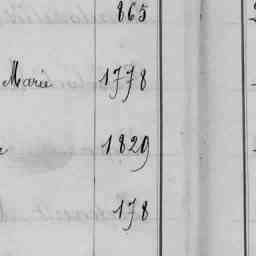 865
Marie 1778
1829
178